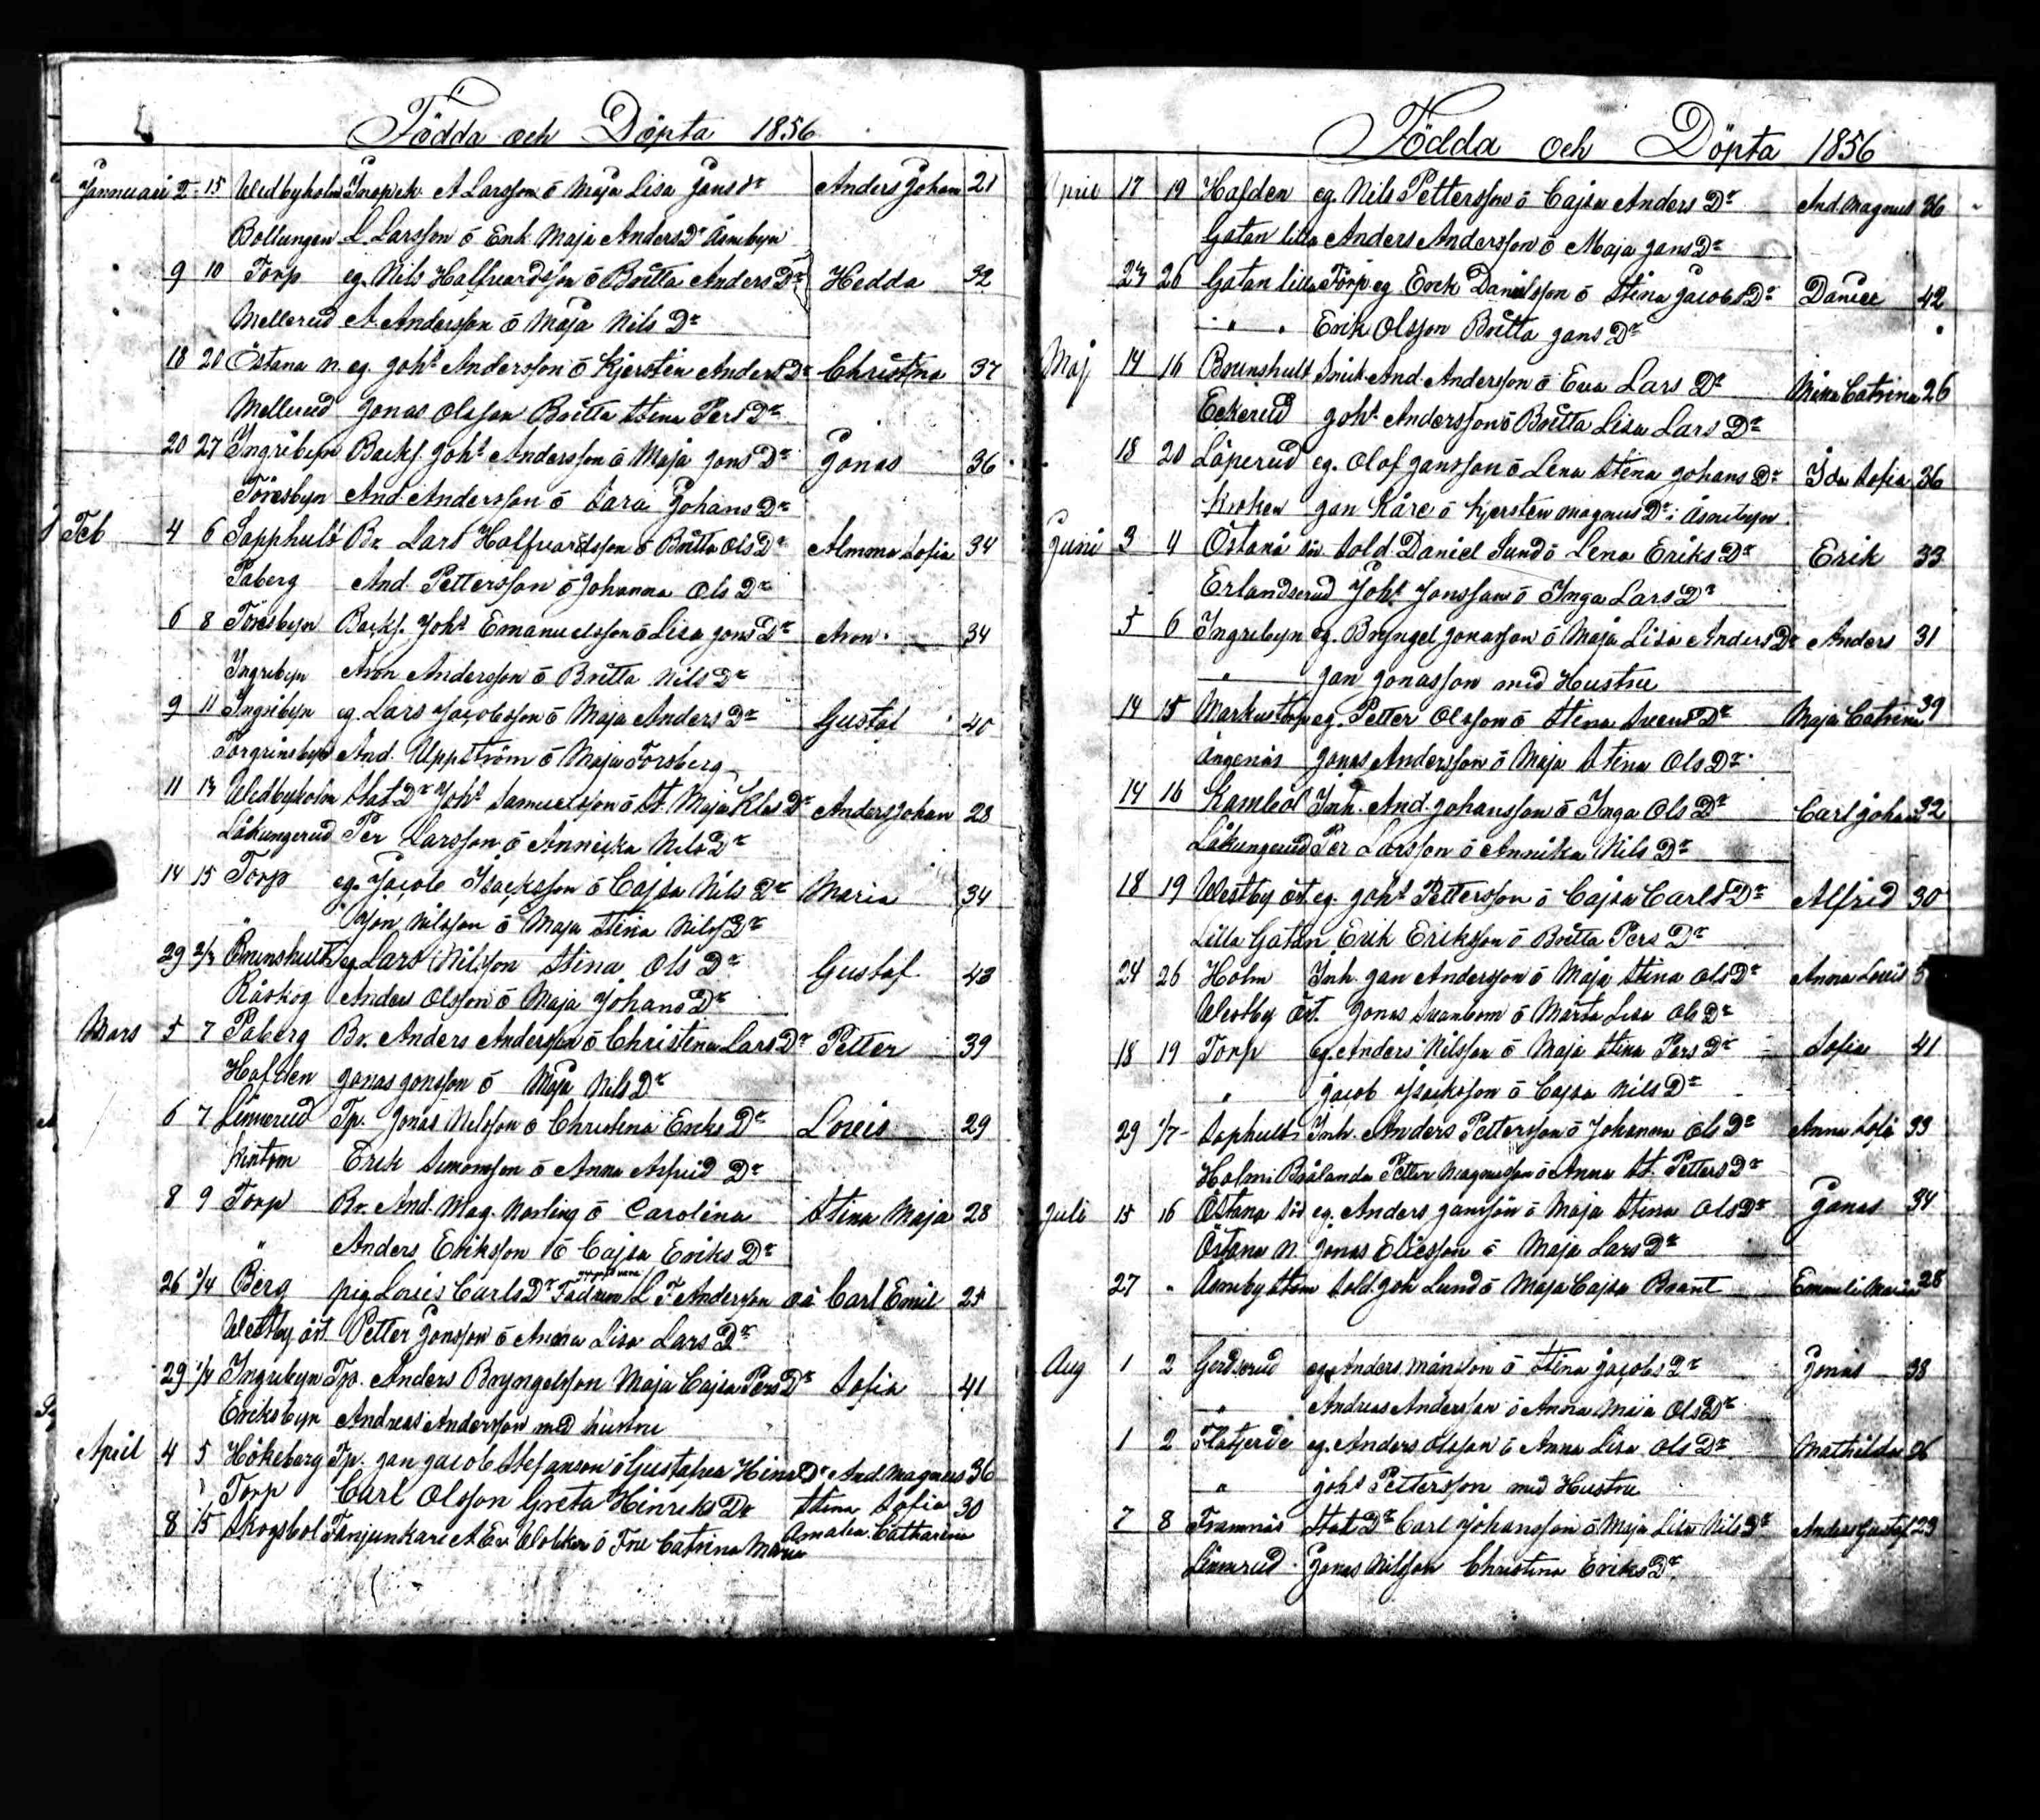 Födda och Döpta 1856
Januari 2 15 Wedbyholm Inspek. A Larsson ō Maja Lisa Jans Dr Anders Johan 21
Bollungen L Larsson ō Enk Maja Anders Dr Åsnebyn
9 10 Torp eg. Nils Halfvardsson ō Britta Anders Dr Hedda 32
Mellerud A. Andersson ō Maja Nils Dr
18 20 Östana n. eg. Johs Andersson ō Kjersten Anders Dr Christina 37
Mellerud Jonas Olsson Britta Stina Pers Dr
20 27 Ingribyn Backf. Johs Andersson ō Maja Jons Dr Jonas 36
Töresbyn And. Andersson ō Sara Johans Dr
Feb 4 6 Sapphult Br. Lars Halfvardsson ō Britta Ols Dr Almma Sofia 34
Paberg And. Pettersson ō Johanna Ols Dr
6 8 Töresbyn Backf. Johs Emanuelsson ō Lisa Jons Dr Aron 34
Ingribyn Aron Andersson ō Britta Nils Dr
9 11 Ingribyn eg. Lars Jacobsson ō Maja Anders Dr Gustaf 40
Torgrinsbyn And. Uppström ō Maja Forsberg
11 13 Wedbyholm Stat Dr Johs Samuelsson ō St. Maja Klas Dr Anders Johan 28
Låkungerud Per Larsson ō Anneika Nils Dr
14 15 Torp eg. Jacob Isacksson ō Cajsa Nils Dr Maria 34
" Jon Nilsson ō Maja Stina Nils Dr
29 2/3 Brunshult eg Lars Nilsson Stina Ols Dr Gustaf 43
Råskog Anders Olsson ō Maja Johans Dr
Mars 5 7 Paberg Br. Anders Andersson ō Christina Lars Dr Petter 39
Hafden Jonas Jonsson ō Maja Nils Dr
6 7 Linnerud Tp. Jonas Nilsson ō Christina Eriks Dr Lovis 29
Kintom Erik Simonsson ō Anna Asfrid Dr
8 9 Torp Br. And. Mag. Norling ō Carolina Stina Maja 28
" Anders Eriksson ō Cajsa Eriks Dr
26 3/4 Berg pig Lovis Carls Dr L F Andersson Carl Emil 25
Westby öst. Petter Jonsson ō Anna Lisa Lars Dr
29 1/4 Ingribyn Tp. Anders Bryngelsson Maja Cajsa Pers Dr Sofia 41
Eriksbyn Andreas Andersson med hustru
April 4 5 Hökeberg Tp. Jan Jacob Stefanson ō Gustafva Hinr Dr And. Magnus 36
Torp Carl Olsson Greta Hinriks Dr Stina Sofia 30
8 15 Skogsbol Fanjunkare A E v Wolcker ō Fru Catrina Maria Amalia Catharina
Födda och Döpta 1856
April 17 19 Hafden eg. Nils Pettersson ō Cajsa Anders Dr And. Magnus 36
Gatan lilla Anders Andersson ō Maja Jans Dr
23 26 Gatan lilla Torp eg Erik Danielsson ō Stina Jacobs Dr Daniel 42
" " Erik Olsson Britta Jans Dr
Maj 14 16 Brunshult Snick. And. Andersson ō Eva Lars Dr Mina Catrina 26
Eckerud Johs Andersson ō Britta Lisa Lars Dr
18 20 Löperud eg. Olof Jansson ō Lena Stina Johans Dr Ida Sofia 36
Kroken Jan Kåre ō Kjersten Magnus Dr i Åsnebyn
Juni 3 4 Östanå sör Sold. Daniel Sund ō Lena Eriks Dr Erik 33
Erlandserud Johs Jonsson ō Inga Lars Dr
5 6 Ingribyn eg. Bryngel Jonasson ō Maja Lisa Anders Dr Anders 31
" Jan Jonasson med Hustru
14 15 Markustorp eg. Petter Olsson ō Stina Svens Dr Maja Catrina 39
Ängenäs Jonas Andersson ō Maja Stina Ols Dr
14 16 Kambol Inh. And. Johansson ō Inga Ols Dr Carl Johan 32
Låkungerud Per Larsson ō Annika Nils Dr
18 19 Westby öst. eg. Johs Pettersson ō Cajsa Carls Dr Alfrid 30
Lilla Gatan Erik Eriksson ō Britta Pers Dr
24 26 Holm Inh. Jan Andersson ō Maja Stina Ols Dr Anna Lovis
Westby öst. Jonas Svanbom ō Märta Lisa Ols Dr
18 19 Torp eg. Anders Nilsson ō Maja Stina Pers Dr Sofia 41
" Jacob Isacksson ō Cajsa Nils Dr
29 1/7 Saphult Inh. Anders Pettersson ō Johanna Ols Dr Anna Sofi 33
Holm i Brålanda Petter Magnusson ō Anna St. Petters Dr
Juli 15 16 Östana sör eg. Anders Jansson ō Maja Stina Ols Dr Jonas 34
Östana n Jonas Eliesson ō Maja Lars Dr
27 " Åsneby Stom Sold. Joh Lund ō Maja Cajsa Brant Emmeli Maria 28
Aug 1 2 Gerdserud eg Anders Månsson ō Stina Jacobs Dr Jonas 38
" Andreas Andersson ō Anna Maja Ols Dr
1 2 Flatjerde eg. Anders Olsson ō Anna Lisa Ols Dr Mathilda 26
" Johs Pettersson med Hustru
7 8 Framnäs Stat Dr Carl Johansson ō Maja Lisa Nils Dr Anders Gustaf 23
Linnerud Jonas Nilsson Christina Eriks Dr